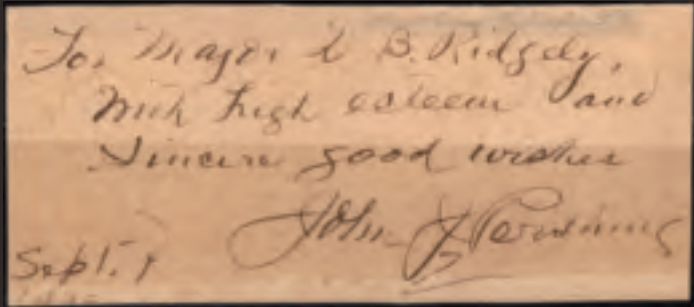 To. Major L B. Ridgely,
With high esteem and
Sincere good wishes
John J Pershing
Sept. 1